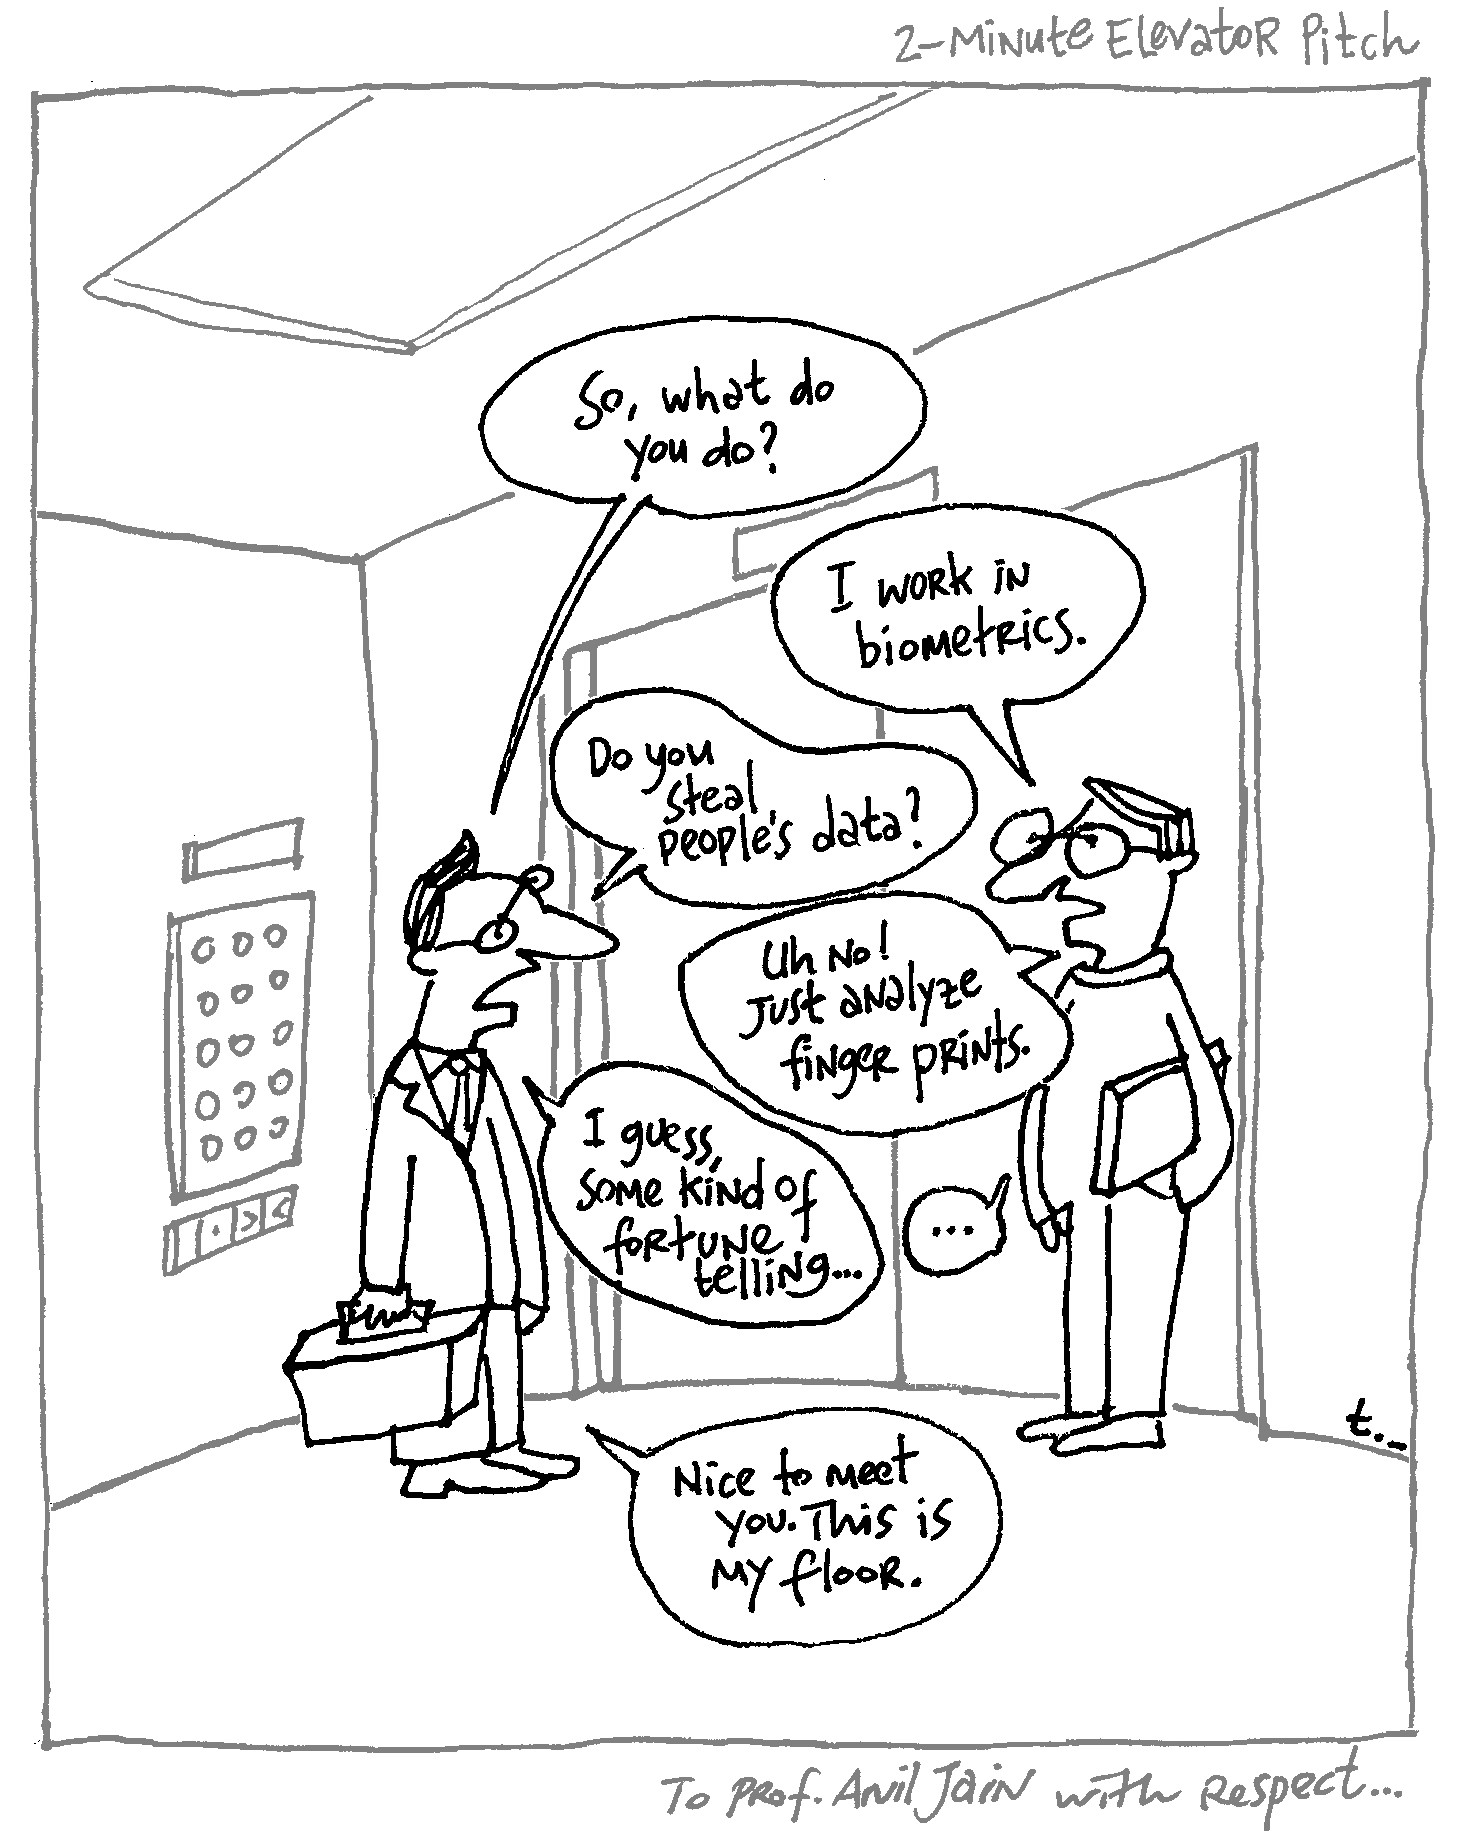 2-Minute Elevator Pitch
So, what do
you do?
I work in
biometrics.
Do you
steal
people's data?
Uh No!
Just analyze
finger prints.
I guess,
some kind of
fortune
telling...
...
Nice to meet
you. This is
my floor.
t._
To Prof. Anil Jain with respect...